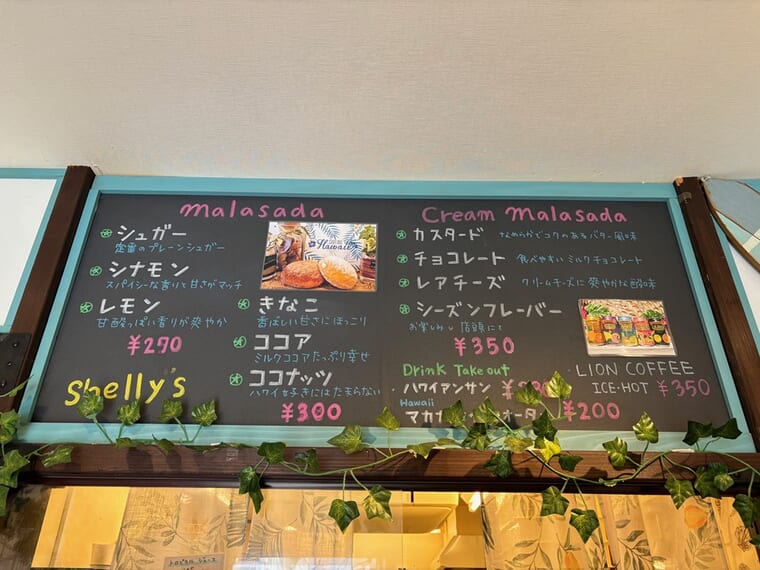 malasada
シュガー
定番のプレーンシュガー
シナモン
スパイシーな香りと甘さがマッチ
レモン
甘酸っぱい香りが爽やか
¥270
Shelly's
Hawaii
きなこ
香ばしい甘さにほっこり
ココア
ミルクココアたっぷり幸せ
ココナッツ
ハワイ好きにはたまらない
¥300
Cream malasada
カスタード なめらかでコクのあるバター風味
チョコレート 食べやすいミルクチョコレート
レアチーズ クリームチーズに爽やかな酸味
シーズンフレーバー
お楽しみ 店頭にて
¥350
Drink Take out
・ハワイアンサン
Hawaii
マカナ
¥200
LION COFFEE
ICE・HOT ¥350